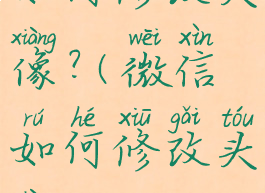 xiàng wēi xìn
像?(微信
rú hé xiū gǎi tóu
如何修改头